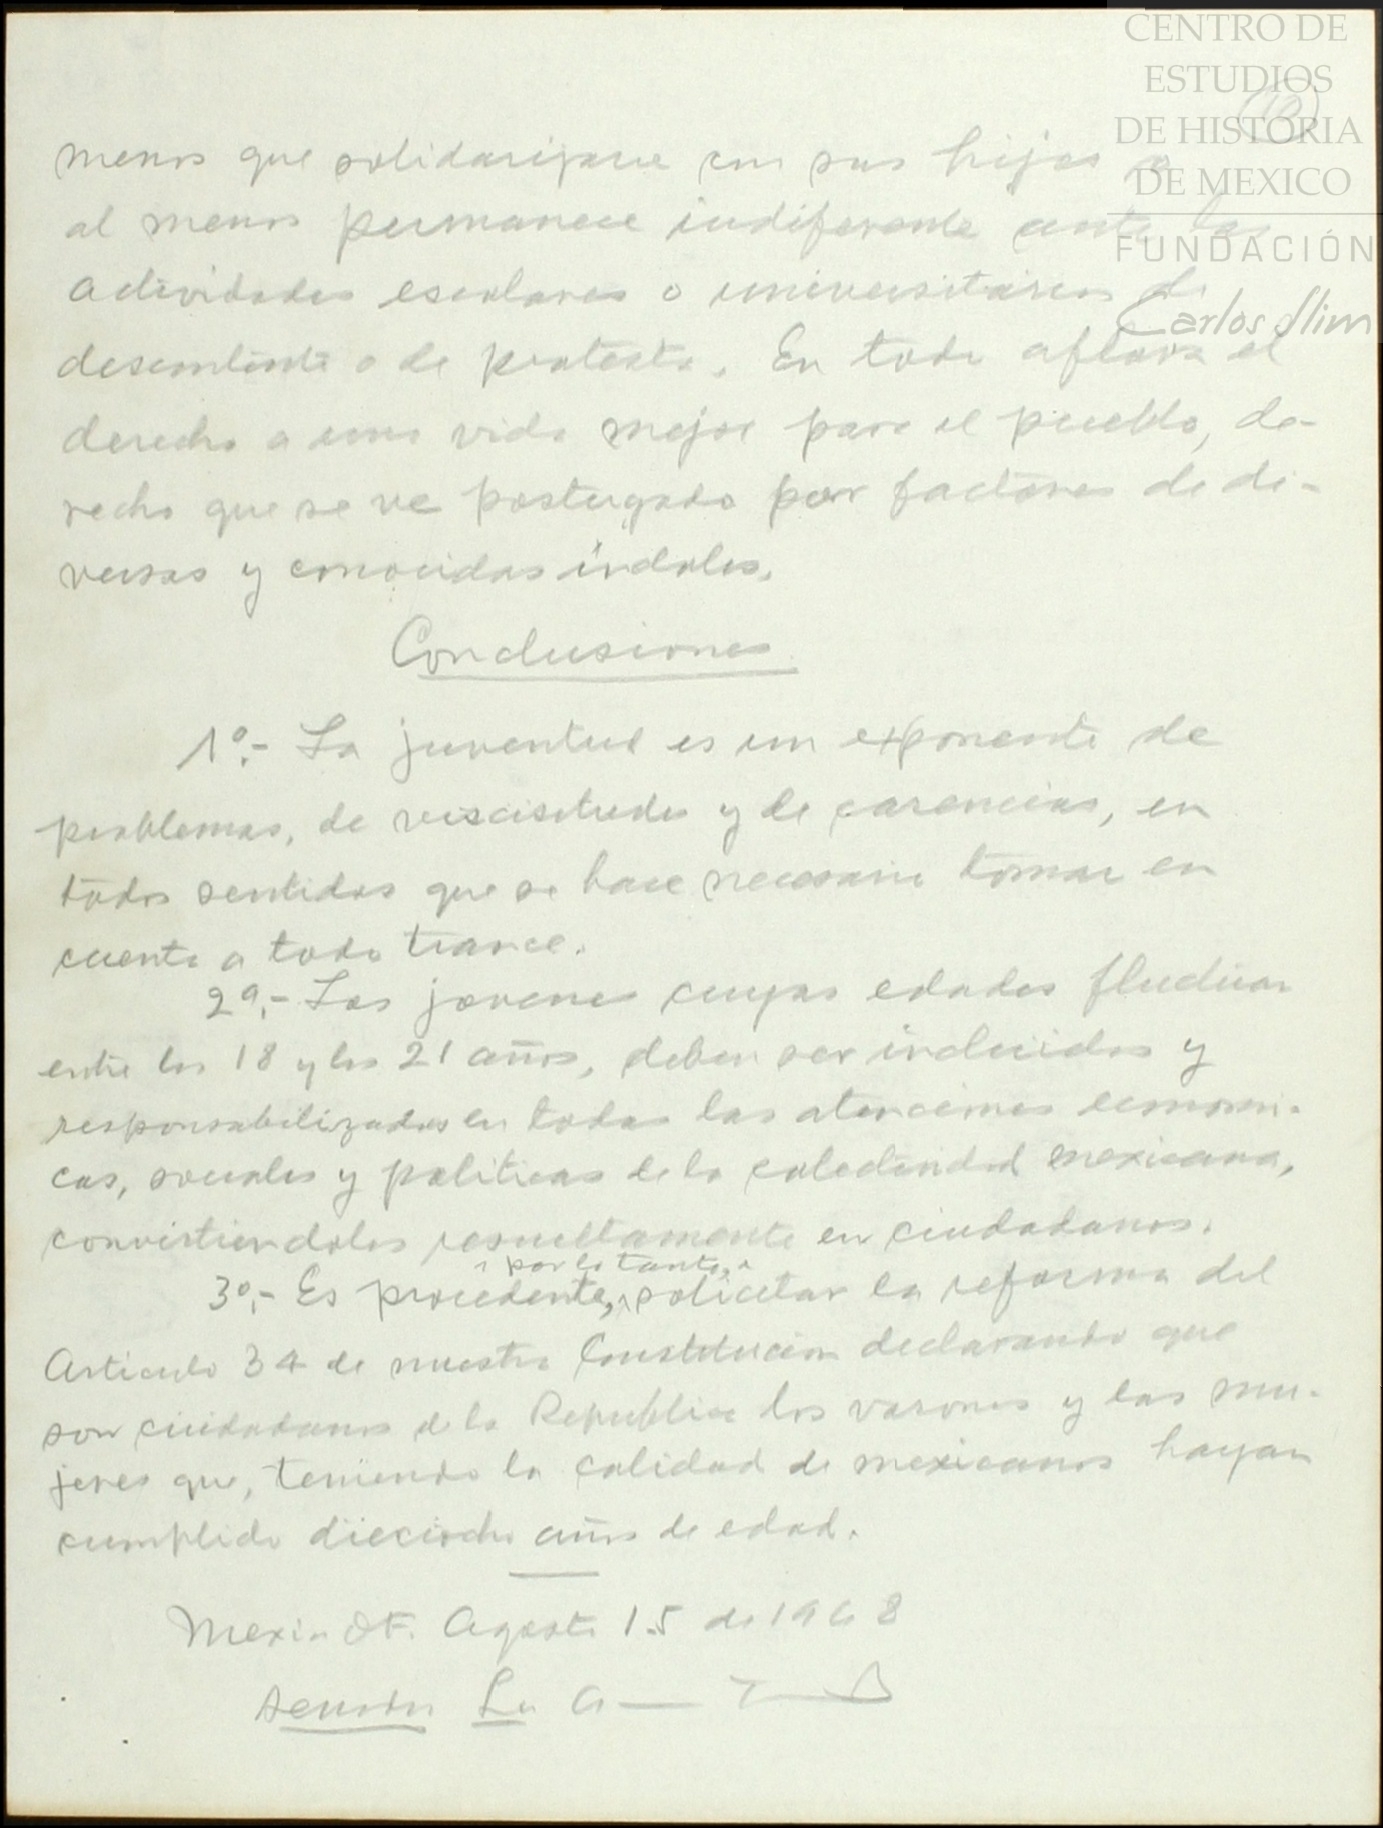 CENTRO DE
ESTUDIOS
DE HISTORIA
DE MEXICO
FUNDACIÓN
Carlos Slim
menos que solidarizarse con sus hijos o
al menos permanece indiferente ante las
actividades escolares o universitarias de
descontento o de protesta. En todo aflora el
derecho a una vida mejor para el pueblo, de-
recho que se ve postergado por factores de di-
versas y conocidas índoles.
Conclusiones
1º.- La juventud es un exponente de
problemas, de viscisitudes y de carencias, en
todos sentidos que se hace necesario tomar en
cuenta a todo trance.
2ª.- Los jovenes cuyas edades fluctúan
entre los 18 y los 21 años, deben ser incluidos y
responsabilizados en todas las atenciones económi-
cas, sociales y políticas de la colectividad mexicana,
convirtiendolos resueltamente en ciudadanos.
por lo tanto,
3º.- Es procedente, solicitar la reforma del
Articulo 34 de nuestra Constitución declarando que
son ciudadanos de la Republica los varones y las mu-
jeres que, teniendo la calidad de mexicanos hayan
cumplido dieciocho años de edad.
Mexico DF. Agosto 15 de 1968
Senador